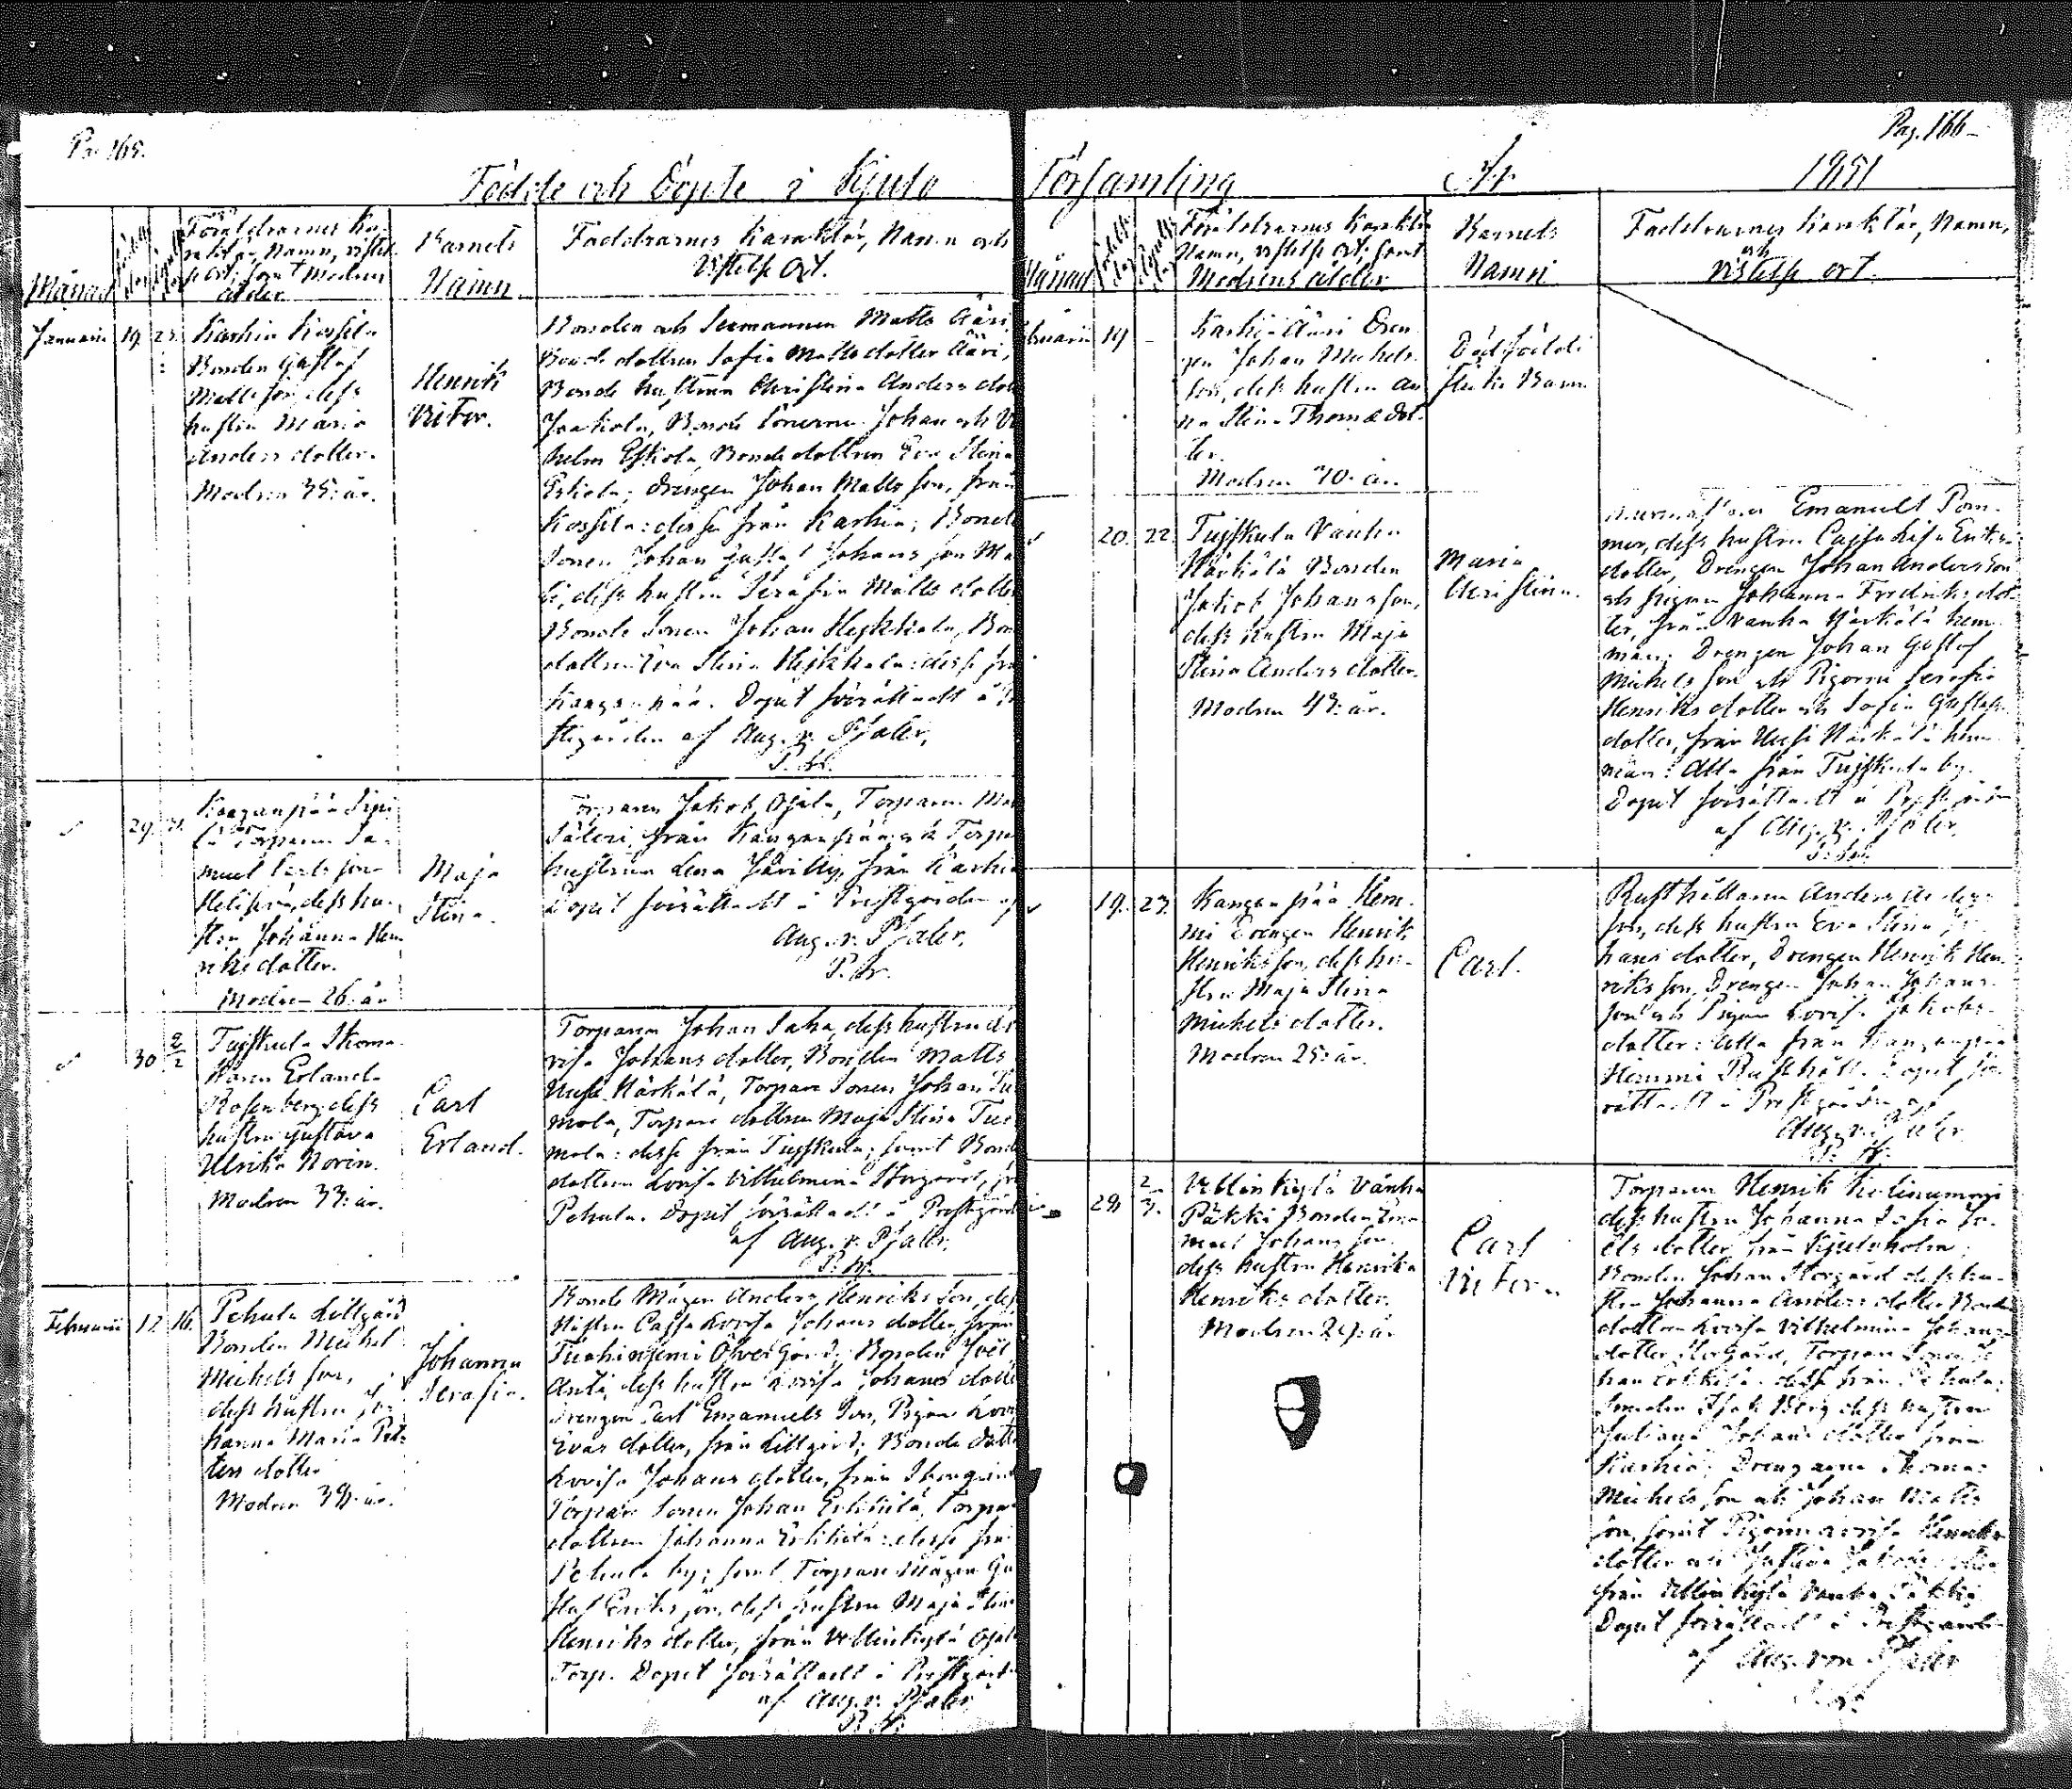 Pag. 165.
Födde och Döpte i Kjulo
Månad
Föräldrarnes Ka-
raktär, Namn, vistel-
se Ort, samt Modrens
ålder
Barnets
Namn
Faddrarnes Karaktär, Namn och
Vistelse Ort.
Januarii 19. 23.
Karhia Kossila
Bonden Gustaf
Matts son, dess
hustru Maria
Anders dotter.
Modren 35. år.
Henrik
Victor.
Bonden och Seemannen Matts Ääri,
Bonde dottren Sofia Matts dotter Ääri,
Bonde hustrun Christina Anders dot
Jaakola, Bonde Sönerna Johan och Vi
helm Eskola, Bonde dottren Eva Stina
Eskola; Drengen Johan Matts son, från
Kossila: desse från Karhia; Bonde
Sonen Johan Gustaf Johans son
dess hustru Serafia Matts dotter
Bonde Sonen Johan Heikkola, Bon
dottren Eva Stina Heikkola: desse frå
Kangenpää. Dopet förrättadt i Pr
stgården af Aug. v. Pfaler,
29. 31.
Kangenpää
Torparen Sa-
muel Carls son
dess hu-
stru Johanna Hen
riks dotter.
Modren 26. år
Maja
Stina.
Torparen Jakob Ojala, Torparen
från Kangenpää och Torpa
hustrun Lena från Karhia
Dopet förrättadt i Prestgården af
Aug. v. Pfaler,
30 2/2
Tuiskula Skoma-
karen Erland
Rosenberg, dess
hustru Gustava
Ulrika Norin.
Modren 33. år.
Carl
Erland.
Torparen Johan Saha, dess hustru Lo
visa Johans dotter, Bonden Matts
Uusi Härkälä, Torpare Sonen Johan Tuo
mola, Torpare dottren Maja Stina Tuo
mola: desse från Tuiskula; samt Bonde
dottren Lovisa Vilhelmina Storgård, från
Pehula. Dopet förrättadt i Prestgård
af Aug. v. Pfaler,
Februarii 12. 16.
Pehula Lillgård
Bonden Michel
Michels son,
dess hustru Jo-
hanna Maria Pet-
ters dotter
Modren 38. år.
Johanna
Serafia.
Bonde Mågen Anders Henriks son, dess
Hustru Cajsa Lovisa Johans dotter, från
Öfver Gård; Bonden Joël
Anti, dess hustru Lovisa Johans dotter
Drengen Carl Emanuels son, Pigan Lovisa
Ivars dotter, från Lillgård; Bonde dott
Lovisa Johans dotter, från Storgård
Torpare Sonen Johan Erkkilä, Torpa
dottren Johanna Erkkilä: desse frå
Pehula by; samt Torpare Mågen Gu
staf Eriks son, dess hustru Maja Stina
Henriks dotter, från Vellinkylä Ojala
Torp. Dopet förrättadt i Prestgård
af Aug. v. Pfaler
Pag. 166
Församling År 1851
Månad
Föräldrarnes Karaktär
Namn, vistelse ort, samt
Modrens ålder
Barnets
Namn
Faddrarnes Karaktär, Namn,
och
vistelse ort.
bruarii 19
Karhia Ääri Dren-
gen Johan Michels
son, dess hustru An
na Stina Thomædot-
ter.
Modren 40. år.
Dödföddt
Barn
20. 22.
Tuiskula Vanha
Härkälä Bonden
Jakob Johansson,
dess hustru Maja
Stina Anders dotter.
Modren 43. år.
Maria
Christina.
Emanuel Pom-
mer, dess hustru Cajsa Lisa
dotter, Drengen Johan Andersson
och pigan Johanna Fredriks dot-
ter, från Vanha Härkälä hem-
man; Drengen Johan Gustaf
Michels son och Pigorna Serafia
Henriks dotter och Sofia Gustafs
dotter, från Uusi Härkälä hem-
man: Alla från Tuiskula by.
Dopet förrättadt i Prestgården
af Aug. v. Pfaler,
19. 23.
Kangenpää Hem-
mi Drengen Henrik
Henriks son, dess hu-
stru Maja Stina
Michels dotter.
Modren 25. år.
Carl.
Rusthållaren Anders Anders
son, dess hustru Eva Stina Jo-
hans dotter, Drengen Henrik Hen-
riks son, Drengen Johan Johans
son och Pigan Lovisa Jakobs
dotter: Alla från Kangenpää
Hemmi Rusthåll. Dopet för-
rättadt i Prestgården af
Aug. v. Pfaler
28 2/3.
Vellinkylä Vanha
Päkki Bonden
Johans son
dess hustru Henrika
Henriks dotter.
Modren 29. år
Carl
Victor.
Torparen Henrik
dess hustru Johanna Sofia
dotter från Kjuloholm;
Bonden Johan Storgård dess hu-
stru Johanna Anders dotter Bonde
dottren Lovisa Vilhelmina Johans
dotter Storgård, Torpare Sonen Jo
han Erkkilä: desse från Pehula;
Isak Berg dess hustru
Juliana Johans dotter från
Karhia; Drengarne Thomas
Michels son och Johan Matts
son, samt Pigorna Lovisa Henriks
dotter och
från Vellinkylä Vanha Päkki
Dopet förrättadt i Prestgården
af Aug. von Pfaler